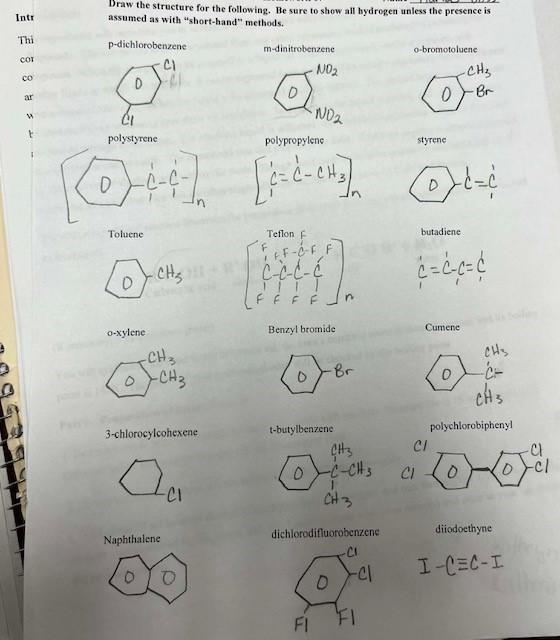 Draw the structure for the following. Be sure to show all hydrogen unless the presence is
assumed as with "short-hand" methods.
Intr
Thi
co
ar
p-dichlorobenzene
m-dinitrobenzene
o-bromotoluene
Cl
Cl
NO2
NO2
CH3
Br
polystyrene
polypropylene
styrene
C-C-
n
C=C-CH3
n
C=C
Toluene
Teflon
butadiene
CH3
F
F F F-C-F F
C-C-C-C
F F F F
n
C=C-C=C
o-xylene
Benzyl bromide
Cumene
CH3
CH3
Br
CH3
C-
CH3
3-chlorocylcohexene
t-butylbenzene
polychlorobiphenyl
Cl
CH3
C-CH3
CH3
Cl
Cl
Cl
Cl
Naphthalene
dichlorodifluorobenzene
diiodoethyne
Cl
Cl
Fl
Fl
I-C≡C-I